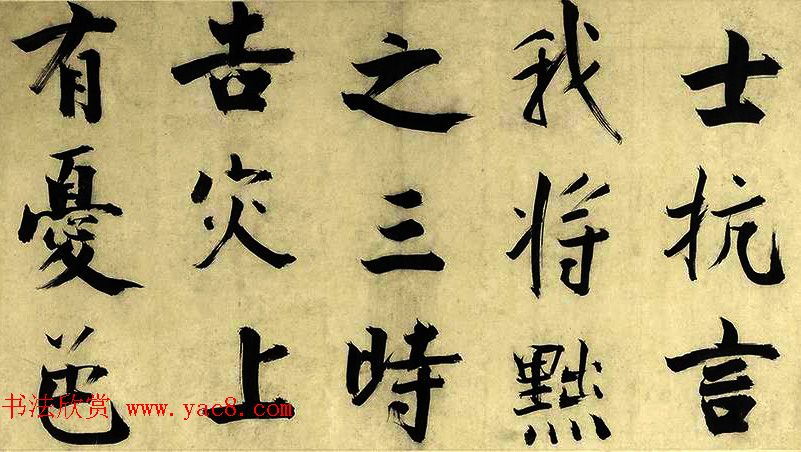 士抗言
我将黜
之三時
告灾上
有憂色
书法欣赏 www.yac8.com